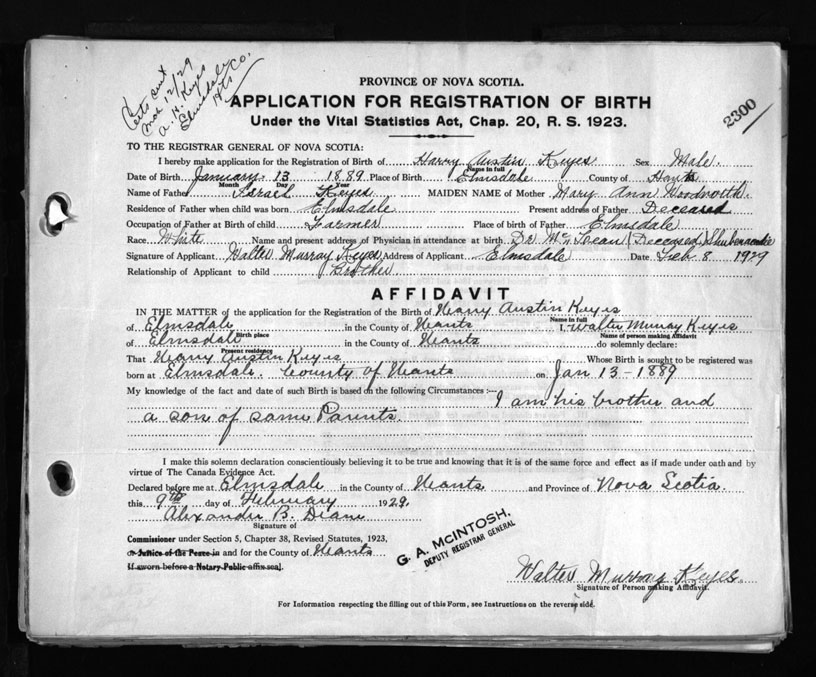 Certs sent
Mar 12/29
A. H. Keyes
Elmsdale Co.
Hts
2300
PROVINCE OF NOVA SCOTIA.
APPLICATION FOR REGISTRATION OF BIRTH
Under the Vital Statistics Act, Chap. 20, R. S. 1923.
TO THE REGISTRAR GENERAL OF NOVA SCOTIA:
I hereby make application for the Registration of Birth of Harry Austin Keyes Sex Male.
Name in full
Date of Birth January 13 1889 Place of Birth Elmsdale County of Hants
Month Day Year
Name of Father Israel Keyes MAIDEN NAME of Mother Mary Ann Woodworth.
Residence of Father when child was born Elmsdale Present address of Father Deceased
Occupation of Father at Birth of child Farmer Place of birth of Father Elmsdale
Race White Name and present address of Physician in attendance at birth Dr. McLean (Deceased) Shubenacadie
Signature of Applicant Walter Murray Keyes Address of Applicant Elmsdale Date Feb. 8 1929
Relationship of Applicant to child Brother
AFFIDAVIT
IN THE MATTER of the application for the Registration of the Birth of Harry Austin Keyes
Name in full
of Elmsdale in the County of Hants I, Walter Murray Keyes
Birth place Name of person making Affidavit
of Elmsdale in the County of Hants do solemnly declare:
Present residence
That Harry Austin Keyes Whose Birth is sought to be registered was
born at Elmsdale. County of Hants on Jan 13 - 1889
My knowledge of the fact and date of such Birth is based on the following Circumstances :— I am his brother and
a son of same Parents.
I make this solemn declaration conscientiously believing it to be true and knowing that it is of the same force and effect as if made under oath and by
virtue of The Canada Evidence Act.
Declared before me at Elmsdale in the County of Hants and Province of Nova Scotia.
this 9th day of February 1929.
Alexander B. Diam
Signature of
Commissioner under Section 5, Chapter 38, Revised Statutes, 1923,
or Justice of the Peace in and for the County of Hants
If sworn before a Notary Public affix seal.
G. A. MCINTOSH,
DEPUTY REGISTRAR GENERAL
Walter Murray Keyes.
Signature of Person making Affidavit.
For Information respecting the filling out of this Form, see Instructions on the reverse side.